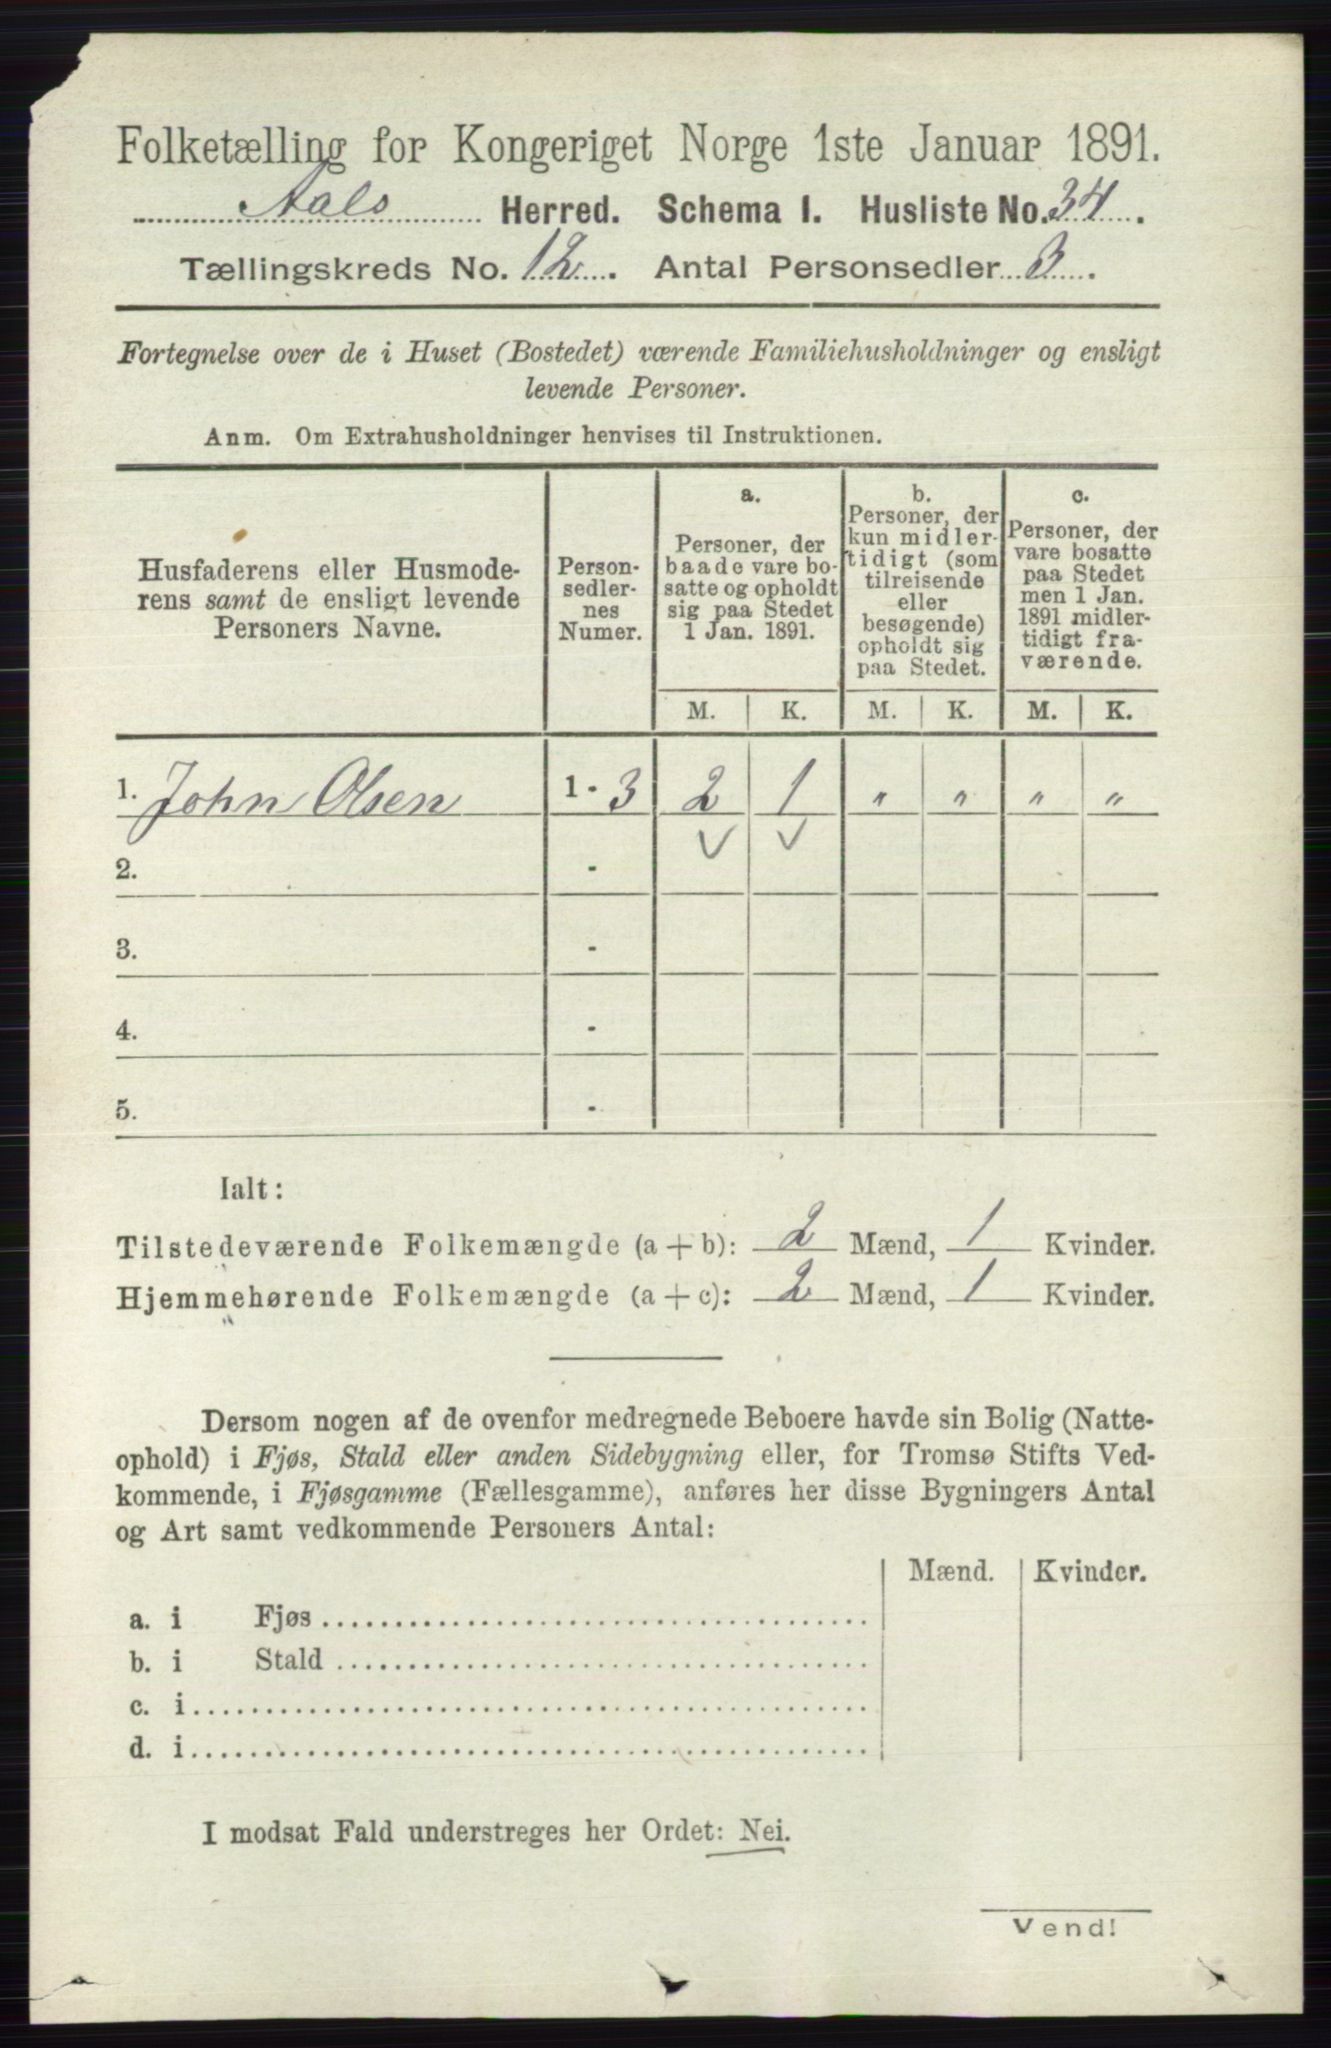 Folketælling for Kongeriget Norge 1ste Januar 1891.
Aals Herred. Schema I. Husliste No. 34.
Tællingskreds No. 12. Antal Personsedler 3.
Fortegnelse over de i Huset (Bostedet) værende Familiehusholdninger og ensligt
levende Personer.
Anm. Om Extrahusholdninger henvises til Instruktionen.
Husfaderens eller Husmode-
rens samt de ensligt levende
Personers Navne.
Person-
sedler-
nes
Numer.
a.
Personer, der
baade vare bo-
satte og opholdt
sig paa Stedet
1 Jan. 1891.
b.
Personer, der
kun midler-
tidigt (som
tilreisende
eller
besøgende)
opholdt sig
paa Stedet.
c.
Personer, der
vare bosatte
paa Stedet
men 1 Jan.
1891 midler-
tidigt fra-
værende.
M. K. M. K. M. K.
1. John Olsen 1 - 3 2 1 " " " "
2. -
3. -
4. -
5. -
Ialt:
Tilstedeværende Folkemængde (a + b): 2 Mænd, 1 Kvinder.
Hjemmehørende Folkemængde (a + c): 2 Mænd, 1 Kvinder.
Dersom nogen af de ovenfor medregnede Beboere havde sin Bolig (Natte-
ophold) i Fjøs, Stald eller anden Sidebygning eller, for Tromsø Stifts Ved-
kommende, i Fjøsgamme (Fællesgamme), anføres her disse Bygningers Antal
og Art samt vedkommende Personers Antal:
Mænd. Kvinder.
a. i Fjøs
b. i Stald
c. i
d. i
I modsat Fald understreges her Ordet: Nei.
Vend!